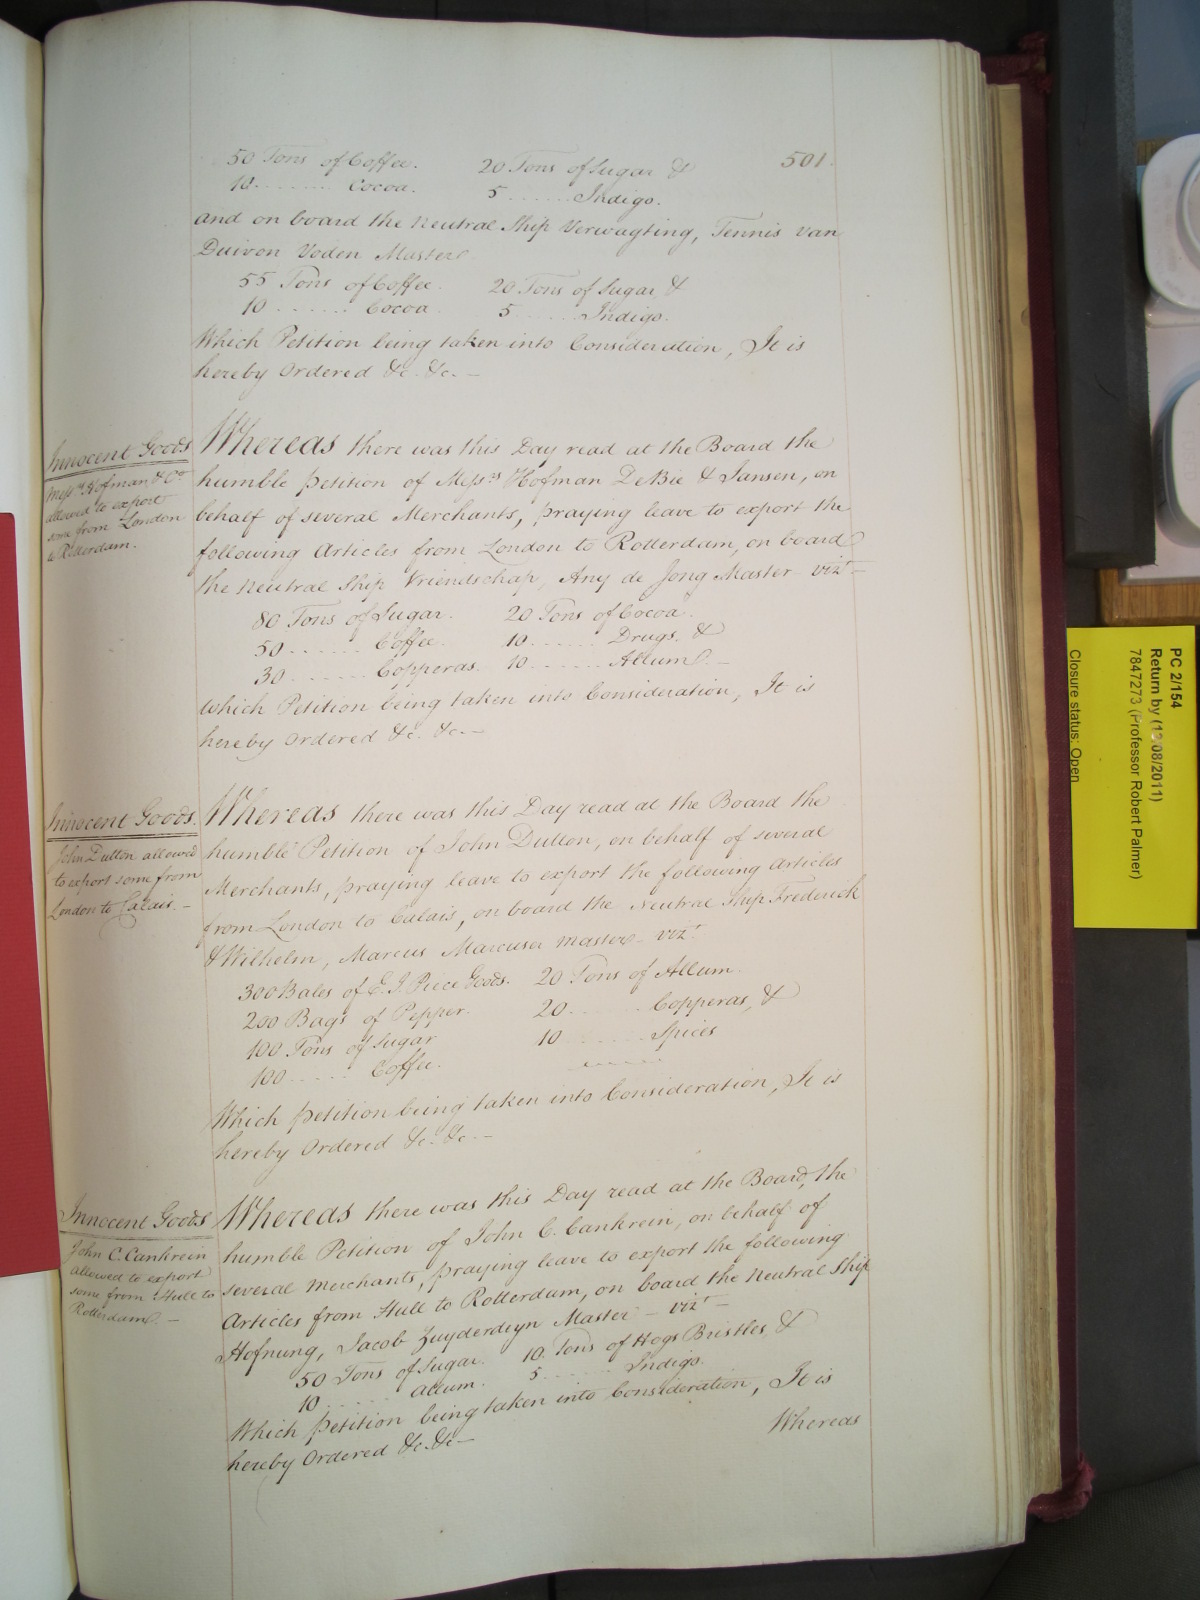 501.
50 Tons of Coffee. 20 Tons of Sugar &
10 ........ Cocoa. 5 ...... Indigo.
and on board the Neutral Ship Verwagting, Tennis van
Duivon Voden Master
55 Tons of Coffee. 20 Tons of Sugar &
10 ....... Cocoa 5 ...... Indigo.
Which Petition being taken into Consideration, It is
hereby Ordered &c. &c. —
Innocent Goods
Messrs. Hofman & Co.
allowed to export
some from London
to Rotterdam.
Whereas there was this Day read at the Board the
humble petition of Messrs Hofman DeBie & Jansen, on
behalf of several Merchants, praying leave to export the
following Articles from London to Rotterdam, on board
the Neutral Ship Vriendschap, Any de Jong Master vizt —
80 Tons of Sugar. 20 Tons of Cocoa.
50 ....... Coffee. 10 ....... Drugs, &
30 ....... Copperas. 10 ....... Allum. —
which Petition being taken into Consideration, It is
hereby Ordered &c. &c. —
Innocent Goods.
John Dutton allowed
to export some from
London to Calais. —
Whereas there was this Day read at the Board the
humble Petition of John Dutton, on behalf of several
Merchants, praying leave to export the following Articles
from London to Calais, on board the Neutral Ship Frederick
& Wilhelm, Marcus Marcuser Master — vizt
300 Bales of E. I. Piece Goods. 20 Tons of Allum
200 Bags of Pepper. 20 ....... Copperas, &
100 Tons of Sugar 10 ....... Spices
100 ...... Coffee.
Which petition being taken into Consideration, It is
hereby Ordered &c. &c. —
Innocent Goods
John C. Cankrein
allowed to export
some from Hull to
Rotterdam. —
Whereas there was this Day read at the Board, the
humble Petition of John C. Cankrein, on behalf of
several Merchants, praying leave to export the following
Articles from Hull to Rotterdam, on board the Neutral Ship
Hofnung, Jacob Zuyderdeyn Master — vizt —
50 Tons of Sugar. 10 Tons of Hogs Bristles, &
10 ...... Allum. 5 ....... Indigo.
Which petition being taken into Consideration, It is
hereby Ordered &c. &c. —
Whereas
PC 2/154
Return by (12/08/2011)
7847273 (Professor Robert Palmer)
Closure status: Open